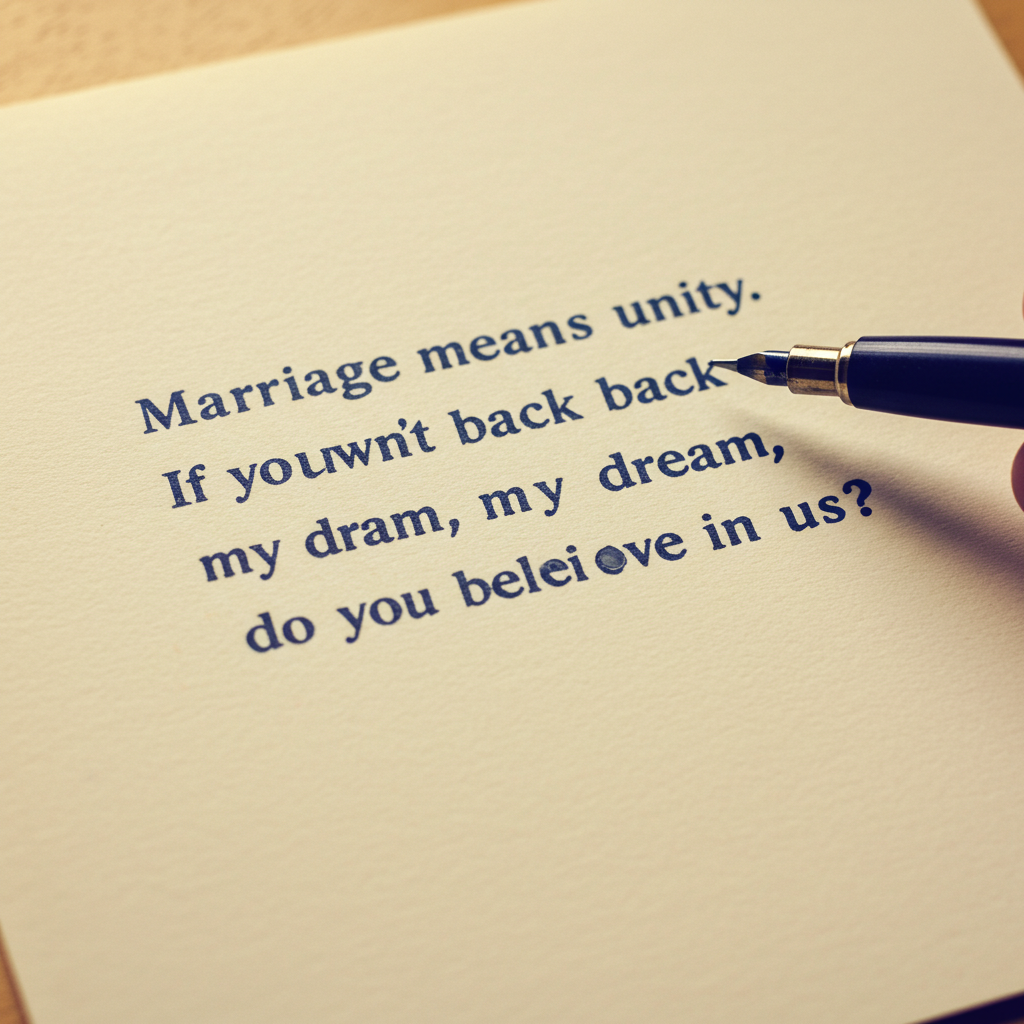 Marriage means unity.
If youwn't back back
my dram, my dream,
do you belei ve in us?